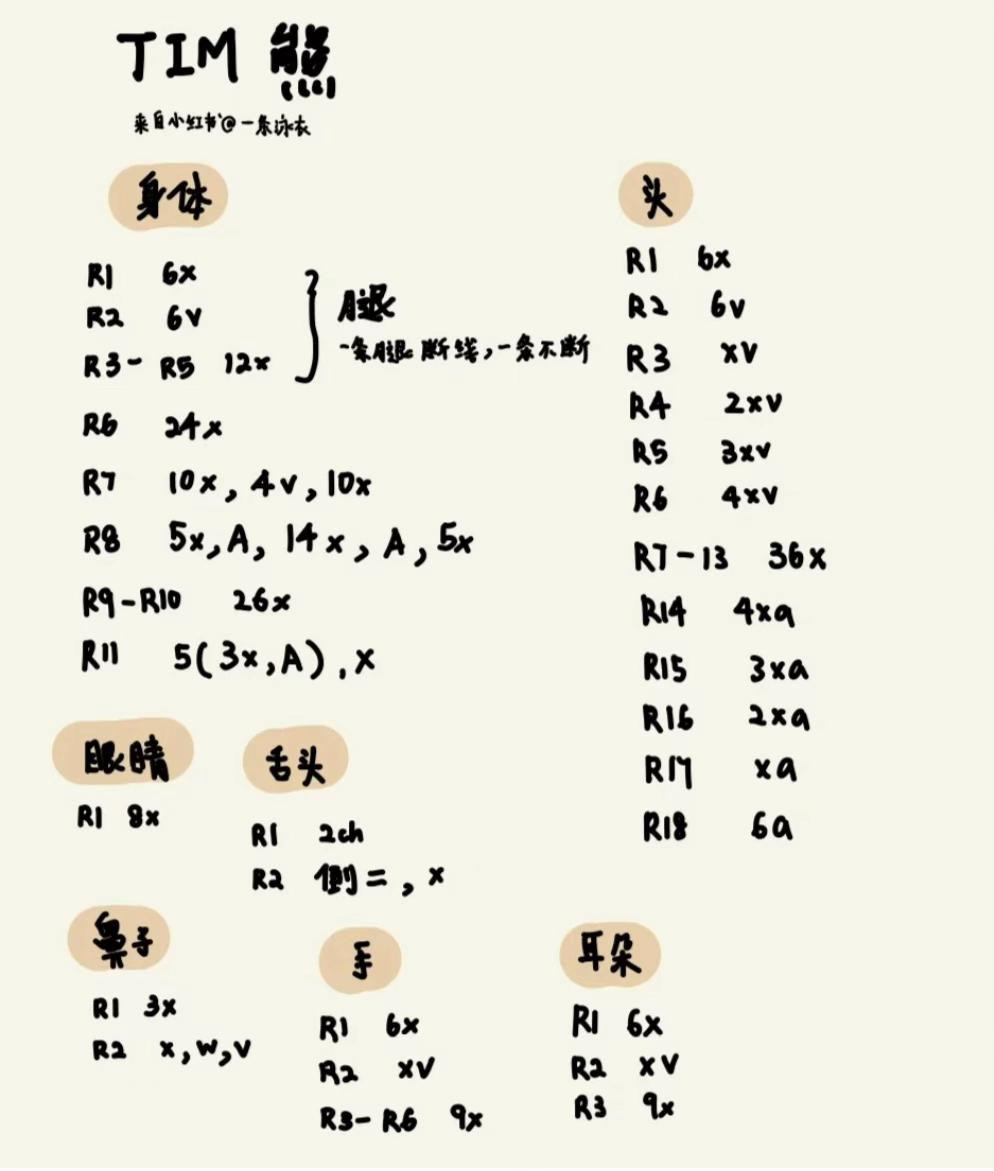 TIM 熊
来自小红书@一条泳衣
身体
R1 6x
R2 6v
R3-R5 12x
腿
一条腿断线,一条不断
R6 24x
R7 10x,4v,10x
R8 5x,A,14x,A,5x
R9-R10 26x
R11 5(3x,A),x
头
R1 6x
R2 6v
R3 xv
R4 2xv
R5 3xv
R6 4xv
R7-13 36x
R14 4xa
R15 3xa
R16 2xa
R17 xa
R18 6a
眼睛
R1 8x
舌头
R1 2ch
R2 侧=,x
鼻子
R1 3x
R2 x,w,v
手
R1 6x
R2 xv
R3-R6 9x
耳朵
R1 6x
R2 xv
R3 9x